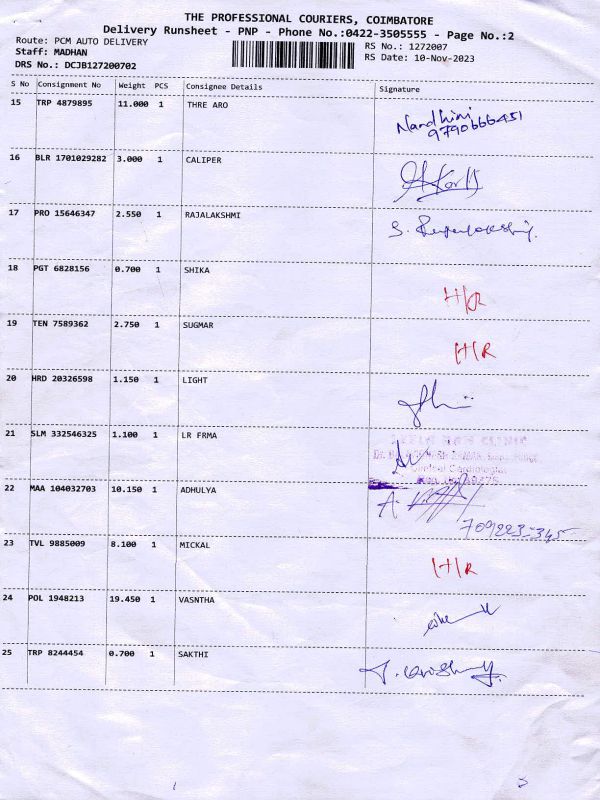 THE PROFESSIONAL COURIERS, COIMBATORE
Delivery Runsheet - PNP - Phone No.:0422-3505555 - Page No.:2
Route: PCM AUTO DELIVERY
RS No.: 1272007
Staff: MADHAN
RS Date: 10-Nov-2023
DRS No.: DCJB127200702
S No Consignment No Weight PCS Consignee Details Signature
15 TRP 4879895 11.000 1 THRE ARO Nandhini
9790666451
16 BLR 1701029282 3.000 1 CALIPER
17 PRO 15646347 2.550 1 RAJALAKSHMI S.
18 PGT 6828156 0.700 1 SHIKA H/R
19 TEN 7589362 2.750 1 SUGMAR H/R
20 HRD 20326598 1.150 1 LIGHT
21 SLM 332546325 1.100 1 LR FRMA
CLINIC
22 MAA 104032703 10.150 1 ADHULYA A.
23 TVL 9885009 8.100 1 MICKAL H/R
24 POL 1948213 19.450 1 VASNTHA
25 TRP 8244454 0.700 1 SAKTHI